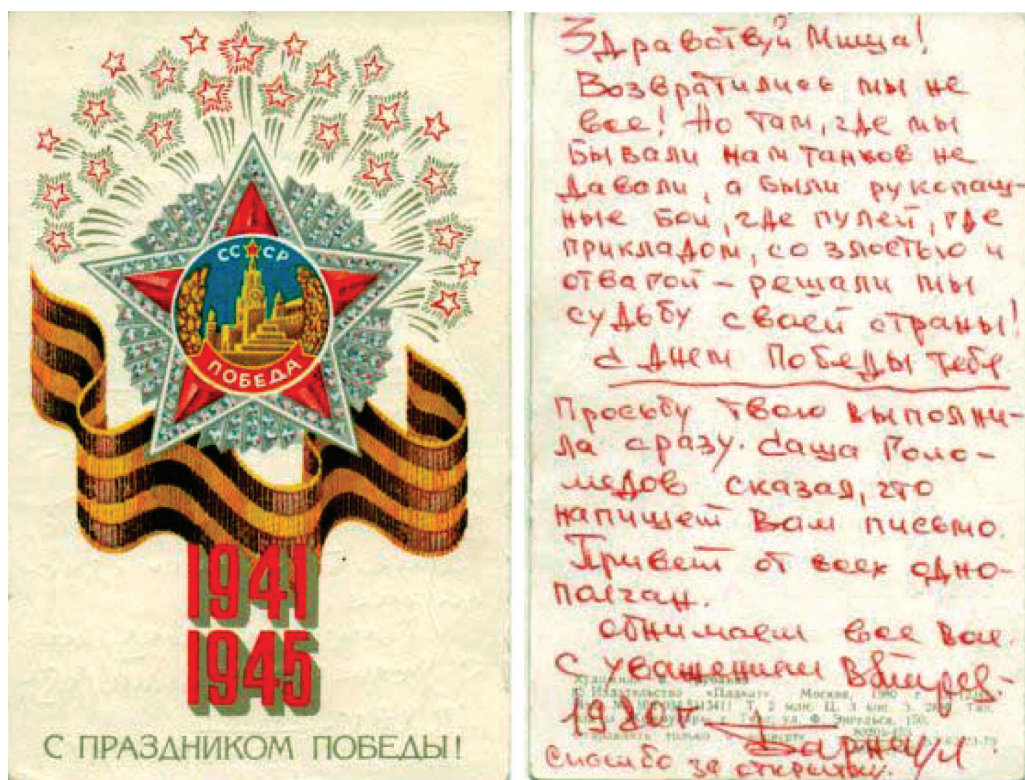 СССР
ПОБЕДА
1941
1945
С ПРАЗДНИКОМ ПОБЕДЫ!
Здравствуй Миша!
Возвратились мы не
все! Но там, где мы
бывали нам танков не
давали, а были рукопаш-
ные бои, где пулей, где
прикладом, со злостью и
отвагой - решали мы
судьбу своей страны!
С Днем Победы тебе
Просьбу твою выполни-
ла сразу. Саша Голо-
медов сказал, что
напишет Вам письмо.
Привет от всех одно-
полчан.
Обнимаем все Вас.
С уважением
Издательство «Плакат». Москва, 1980 г.
ул. Ф. Энгельса, 150.
198
только
Спасибо за открытки.